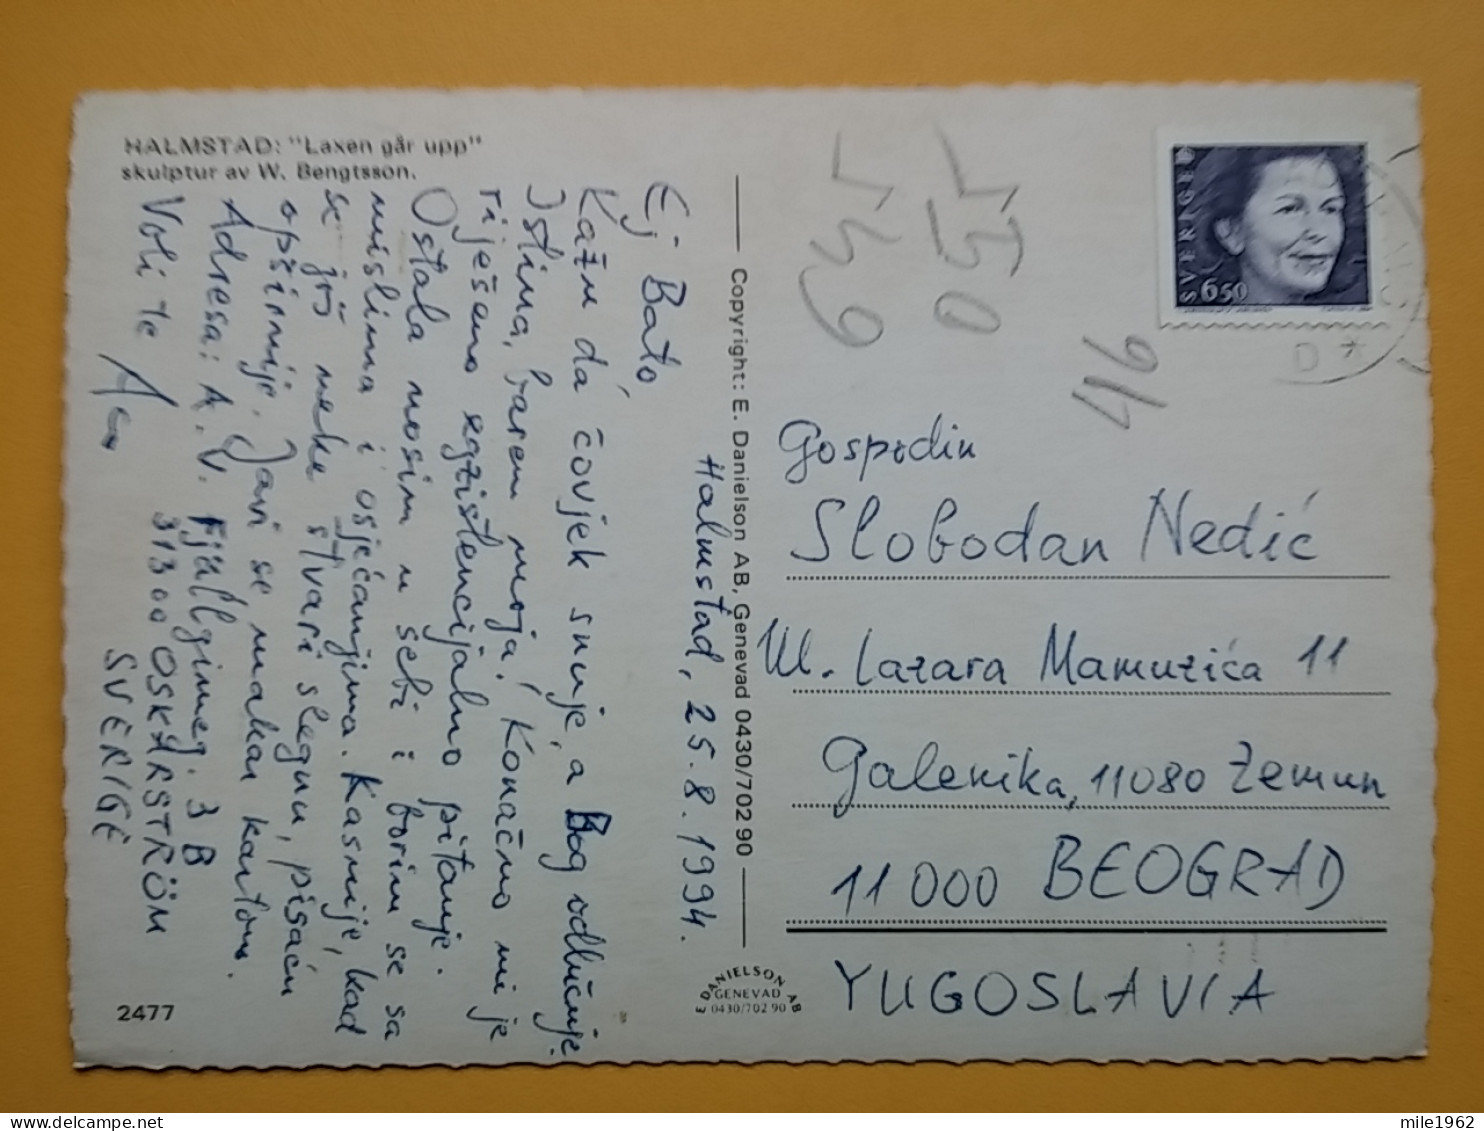 HALMSTAD: "Laxen går upp"
skulptur av W. Bengtsson.
Halmstad, 25.8.1994.
Ej Bato,
Kažu da čovjek snuje, a Bog odlučuje.
Istina, barem moja! Konačno mi je
riješeno egzistencijalno pitanje.
Ostala nosim u sebi i borim se sa
mislima i osjećanjima. Kasnije, kad
se još neke stvari slegnu, pisaću
opširnije. Javi se makar kartom.
Adresa: A. V. Fjällgimeg. 3 B
31300 OSKARSTRÖM
SVERIGE
Voli te
2477
Copyright: E. Danielson AB, Genevad 0430/702 90
E DANIELSON AB
GENEVAD
0430/702 90
549
550
94
SVERIGE
6,50
D *
Gospodin
Slobodan Nedić
Ul. Lazara Mamuzića 11
Galenika, 11080 Zemun
11 000 BEOGRAD
YUGOSLAVIA
mile1962